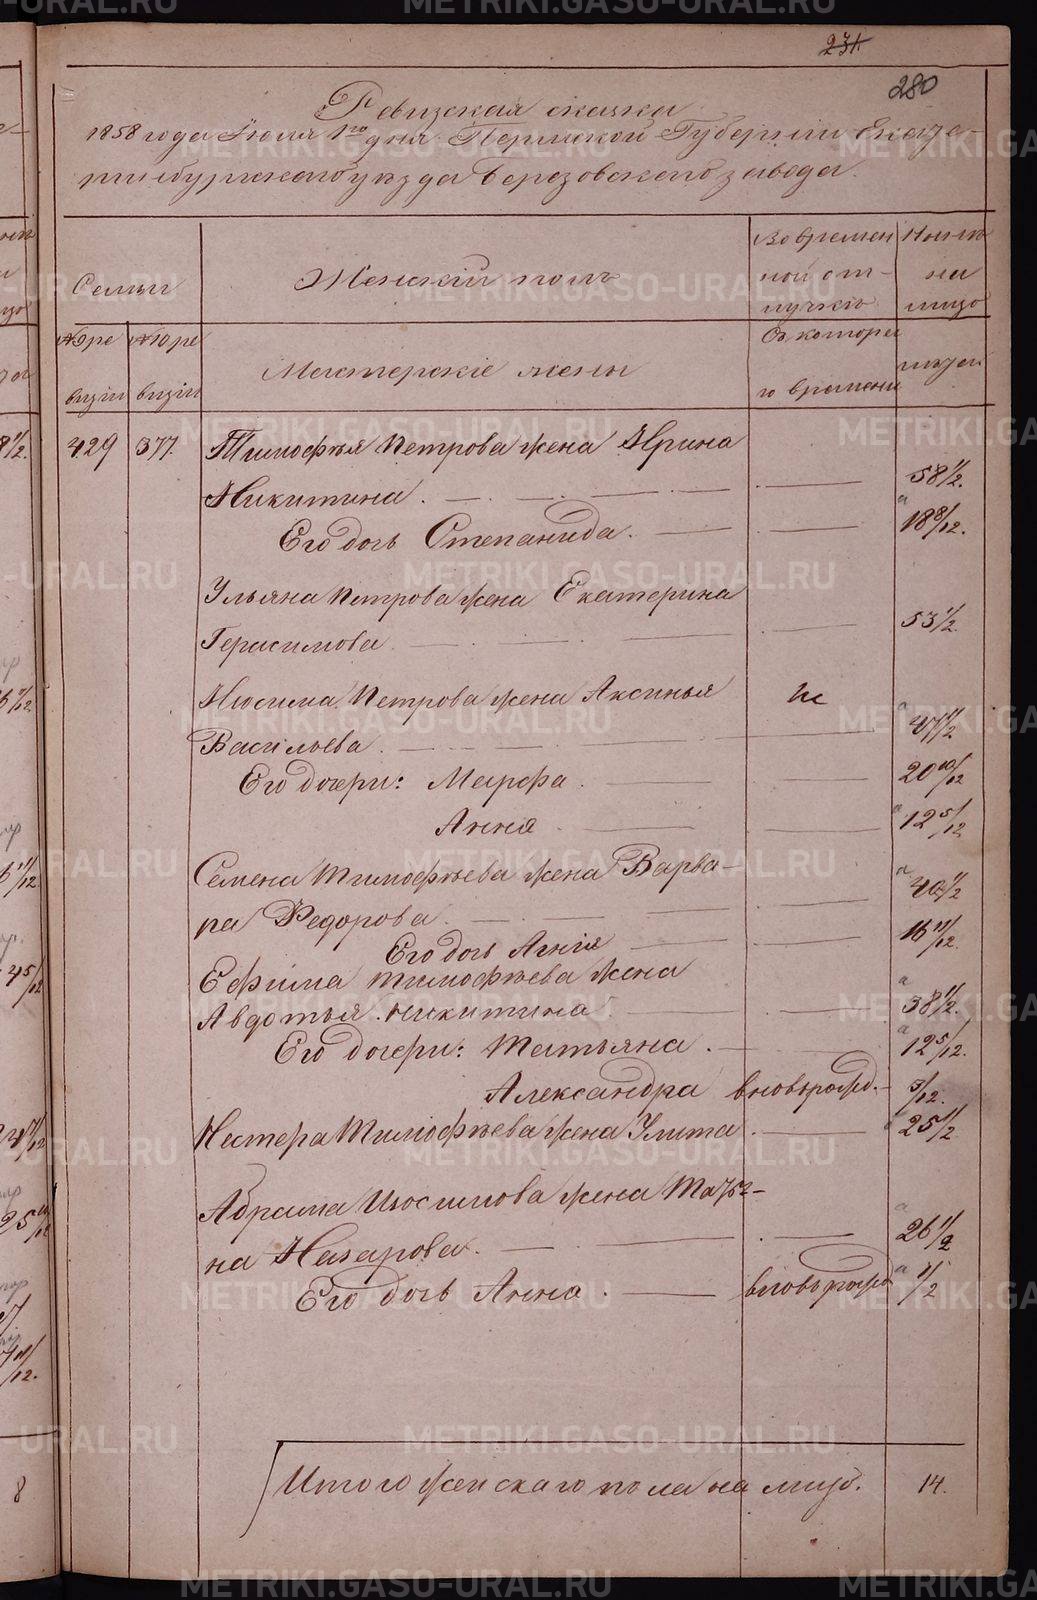 231.
280
Ревизская сказка
1858 года Июля 1го дня Пермской Губернии Екате-
ринбургского уезда Березовского завода.
Семьи
Женский пол
Во времен
ной от-
лучке
Ныне
на
лицо
№ 9 ре
визии
№ 10 ре
визии
Мастерские жены
Съ которо
го времени
429 377. Тимофея Петрова жена Ирина
Никитина. 58 1/2.
Его дочь Степанида. 18 8/12.
Ульяна Петрова жена Екатерина
Герасимова 53 1/2.
Иосима Петрова жена Аксинья
Васильева. 47 1/2
Его дочери: Марфа. 20 10/12
Анна. 12 5/12
Семена Тимофеева жена Варва-
ра Федорова. 40 1/2
Его дочь Агния 16 11/12.
Ефима Тимофеева жена
Авдотья Никитина 38 1/2.
Его дочери: Татьяна. 12 5/12.
Александра вновьрожд. 5/12.
Нестера Тимофеева жена Улита 25 1/2
Абрама Иосимова жена Матре-
на Назарова. 26 1/2
Его дочь Анна. вновьрожд 1/2
Итого женского пола на лицо. 14.
METRIKI.GASO-URAL.RU